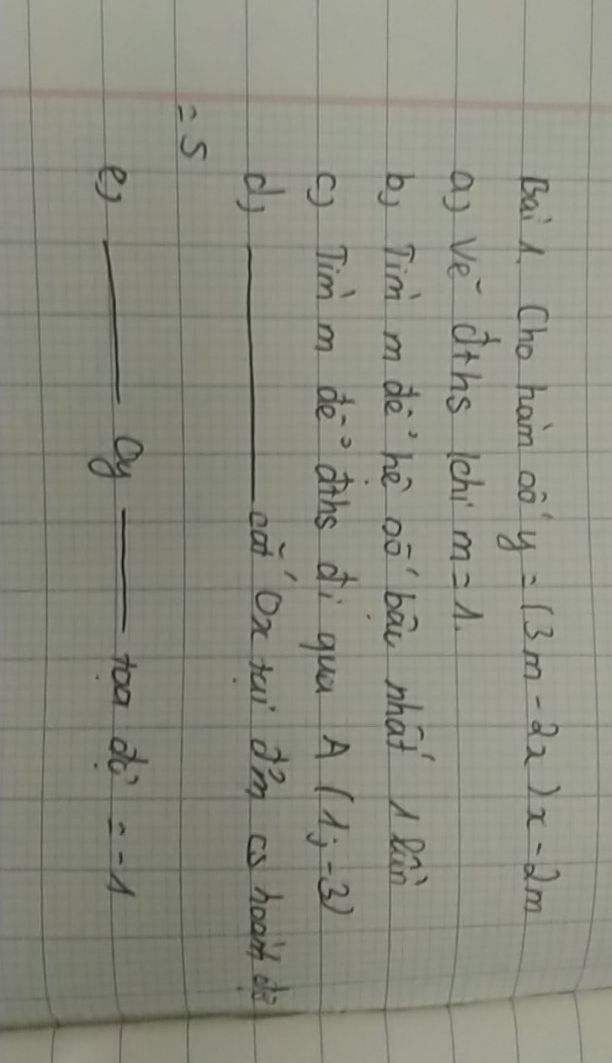 Bài 1. Cho hàm số y = (3m - 2x)x - 2m
a) Vẽ đths khi m = 1.
b) Tìm m để hệ số bậc nhất 1 lần
c) Tìm m để đths đi qua A (1; -3)
d) ——— cắt Ox tại đ'm có hoành độ
= 5
e) ——— Oy ——— toạ độ = -1